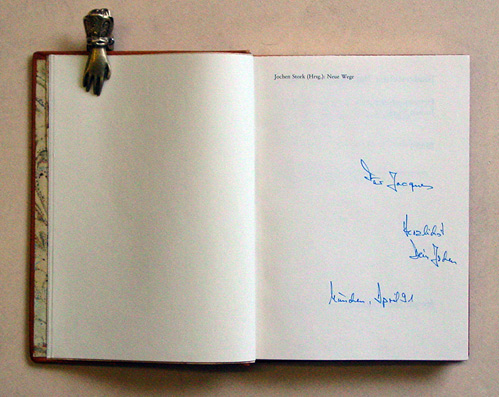 Jochen Stork (Hrsg.): Neue Wege
Für Jacques
Herzlichst
Dein Jochen
München, April 91